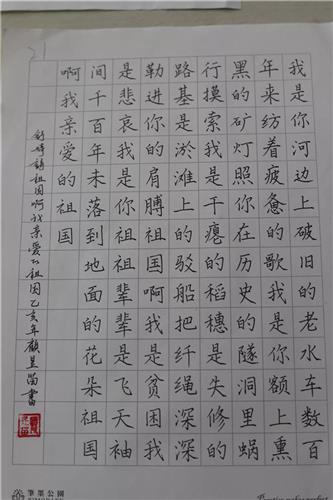 我是你河边上破旧的老水车数百
年来纺着疲惫的歌我是你额上熏
黑的矿灯照你在历史的隧洞里蜗
行摸索我是干瘪的稻穗是失修的
路基是淤滩上的驳船把纤绳深深
勒进你的肩膊祖国啊我是贫困我
是悲哀我是你祖祖辈辈是飞天袖
间千百年未落到地面的花朵祖国
啊我亲爱的祖国
舒婷 祖国啊我亲爱的祖国乙亥年顾 書
筆墨公園